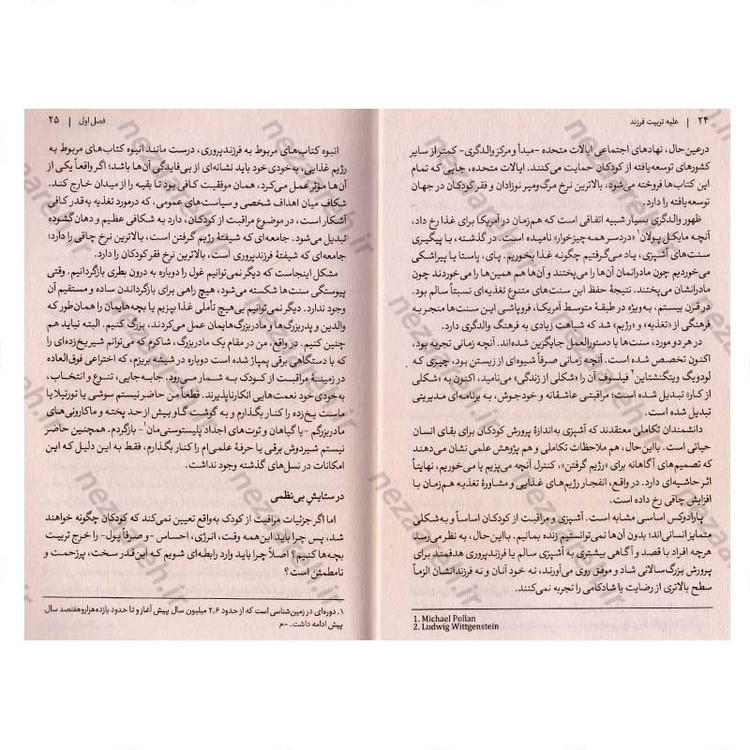 ۲۴ | علیه تربیت فرزند
درعین‌حال، نهادهای اجتماعی ایالات متحده -مبدأ و مرکز والدگری- کمتر از سایر
کشورهای توسعه‌یافته از کودکان حمایت می‌کنند. ایالات متحده، جایی که تمام
این کتاب‌ها فروخته می‌شود، بالاترین نرخ مرگ‌ومیر نوزادان و فقر کودکان در جهان
توسعه‌یافته را دارد.
ظهور والدگری بسیار شبیه اتفاقی است که هم‌زمان در آمریکا برای غذا رخ داد،
آنچه مایکل پولان۱ «دردسر همه‌چیزخوار» نامیده است. در گذشته، با پیگیری
سنت‌های آشپزی، یاد می‌گرفتیم چگونه غذا بخوریم. پای، پاستا یا پیراشکی
می‌خوردیم چون مادرانمان آن‌ها را می‌پختند و آن‌ها هم همین‌ها را می‌خوردند چون
مادرانشان می‌پختند. نتیجهٔ حفظ این سنت‌های متنوع تغذیه‌ای نسبتاً سالم بود.
در قرن بیستم، به‌ویژه در طبقهٔ متوسط آمریکا، فروپاشی این سنت‌ها منجر به
فرهنگی از «تغذیه» و «رژیم» شد که شباهت زیادی به فرهنگ والدگری دارد.
در هر دو مورد، سنت‌ها با دستورالعمل جایگزین شده‌اند. آنچه زمانی تجربه بود،
اکنون تخصص شده است. آنچه زمانی صرفاً شیوه‌ای از زیستن بود، چیزی که
لودویگ ویتگنشتاین۲ فیلسوف آن را «شکلی از زندگی» می‌نامید، اکنون به «شکلی
از کار» تبدیل شده است؛ مراقبتی عاشقانه و خودجوش، به برنامه‌ای مدیریتی
تبدیل شده است.
دانشمندان تکاملی معتقدند که آشپزی به‌اندازهٔ پرورش کودکان برای بقای انسان
حیاتی است. بااین‌حال، هم ملاحظات تکاملی و هم پژوهش علمی نشان می‌دهند
که تصمیم‌های آگاهانه برای «رژیم گرفتن»، کنترل آنچه می‌پزیم یا می‌خوریم، نهایتاً
اثر حاشیه‌ای دارد. در واقع، انفجار رژیم‌های غذایی و مشاورهٔ تغذیه هم‌زمان با
افزایش چاقی رخ داده است.
پارادوکس اساسی مشابه است. آشپزی و مراقبت از کودکان اساساً و به‌شکلی
متمایز انسانی‌اند؛ بدون آن‌ها نمی‌توانستیم زنده بمانیم. بااین‌حال، به نظر می‌رسد
هرچه افراد با قصد و آگاهی بیشتری به آشپزی سالم یا فرزندپروری هدفمند برای
پرورش بزرگ‌سالانی شاد و موفق روی می‌آورند، نه خود آنان و نه فرزندانشان الزاماً
سطح بالاتری از رضایت یا شادکامی را تجربه نمی‌کنند.
1. Michael Pollan
2. Ludwig Wittgenstein
فصل اول | ۲۵
انبوه کتاب‌های مربوط به فرزندپروری، درست مانند انبوه کتاب‌های مربوط به
رژیم غذایی، به‌خودی‌خود باید نشانه‌ای از بی‌فایدگی آن‌ها باشد؛ اگر واقعاً یکی از
آن‌ها مؤثر عمل می‌کرد، همان موفقیت کافی بود تا بقیه را از میدان خارج کند.
شکاف میان اهداف شخصی و سیاست‌های عمومی، که درمورد تغذیه به‌قدر کافی
آشکار است، در موضوع مراقبت از کودکان، دارد به شکافی عظیم و دهان‌گشوده
تبدیل می‌شود. جامعه‌ای که شیفتهٔ رژیم گرفتن است، بالاترین نرخ چاقی را دارد؛
جامعه‌ای که شیفتهٔ فرزندپروری است، بالاترین نرخ فقر کودکان را دارد.
مشکل اینجاست که دیگر نمی‌توانیم غول را دوباره به درون بطری بازگردانیم. وقتی
پیوستگی سنت‌ها شکسته می‌شود، هیچ راهی برای بازگرداندن ساده و مستقیم آن
وجود ندارد. دیگر نمی‌توانیم بی‌هیچ تأملی غذا بپزیم یا بچه‌هایمان را همان‌طور که
والدین و پدربزرگ‌ها و مادربزرگ‌هایمان عمل می‌کردند، بزرگ کنیم. البته نباید هم
چنین کنیم. در واقع، من در مقام یک مادربزرگ، شاکرم که می‌توانم شیر یخ‌زده‌ای را
که با دستگاهی برقی پمپاژ شده است دوباره در شیشه بریزم، که اختراعی فوق‌العاده
در زمینهٔ مراقبت از کودک به شمار می‌رود. جابه‌جایی، تنوع و انتخاب،
به‌خودی‌خود نعمت‌هایی انکارناپذیرند. قطعاً من حاضر نیستم سوشی یا تورتیلا یا
ماست یخ‌زده را کنار بگذارم و به گوشت گاو بیش از حد پخته و ماکارونی‌های
مادربزرگم -یا گیاهان و توت‌های اجداد پلیستوسنی‌مان۱- بازگردم. همچنین حاضر
نیستم شیردوش برقی یا حرفهٔ علمی‌ام را کنار بگذارم، فقط به این دلیل که این
امکانات در نسل‌های گذشته وجود نداشت.
در ستایش بی‌نظمی
اما اگر جزئیات مراقبت از کودک به‌واقع تعیین نمی‌کند که کودکان چگونه خواهند
شد، پس چرا باید این‌همه وقت، انرژی، احساس -و صرفاً پول- را خرج تربیت
بچه‌ها کنیم؟ اصلاً چرا باید وارد رابطه‌ای شویم که این‌قدر سخت، پرزحمت و
نامطمئن است؟
۱. دوره‌ای در زمین‌شناسی است که از حدود ۲٫۶ میلیون سال پیش آغاز و تا حدود یازده‌هزاروهفتصد سال
پیش ادامه داشت. -م
nezamareh.ir